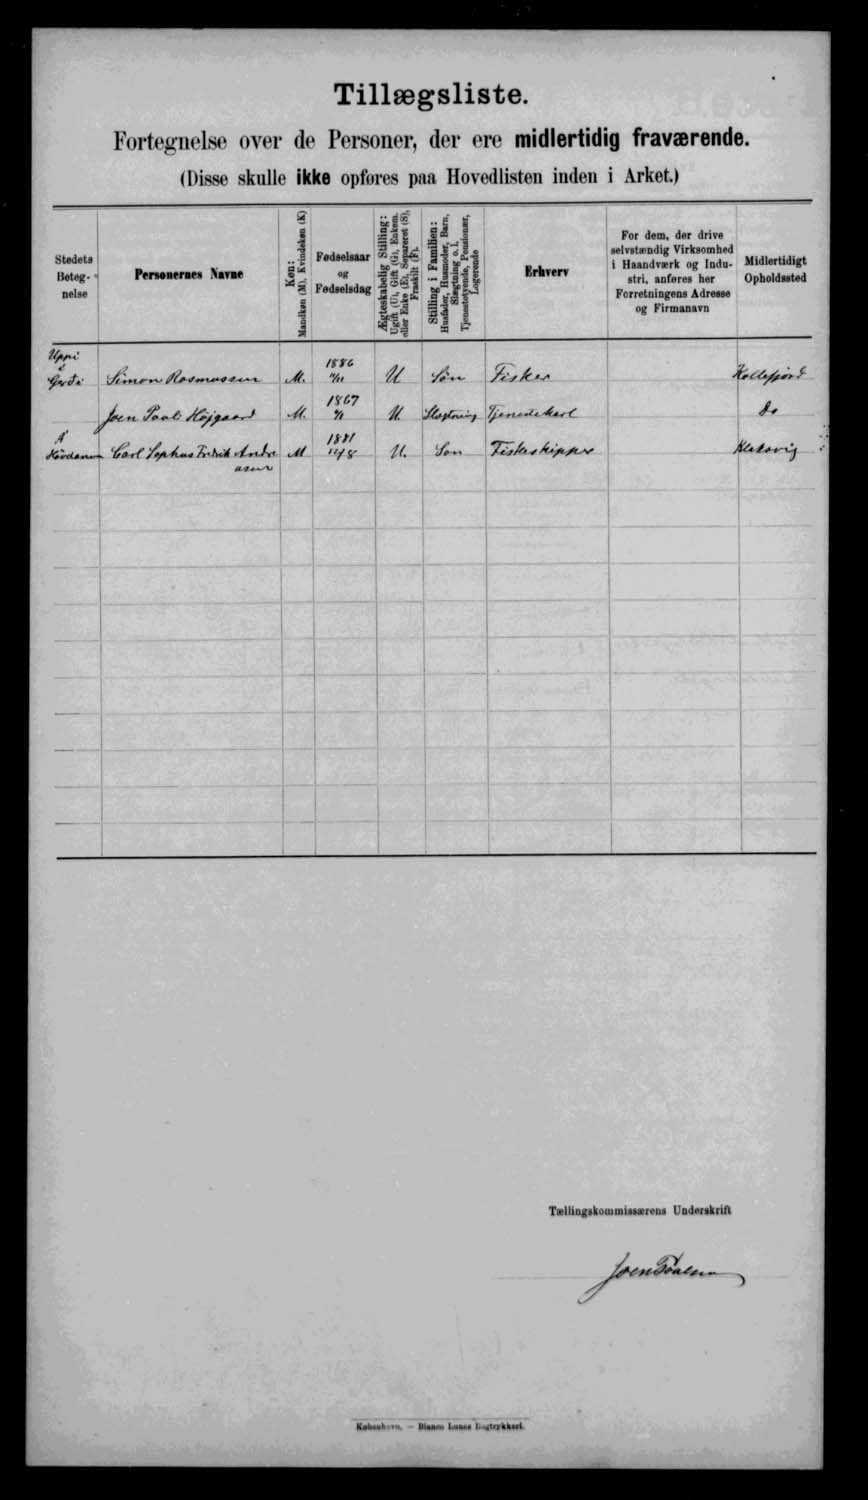 Tillægsliste.
Fortegnelse over de Personer, der ere midlertidig fraværende.
(Disse skulle ikke opføres paa Hovedlisten inden i Arket.)
Stedets Betegnelse
Personernes Navne
Køn: Mandkøn (M), Kvindekøn (K)
Fødselsaar og Fødselsdag
Ægteskabelig Stilling: Ugift (U), Gift (G), Enkem. eller Enke (E), Separeret (S), Fraskilt (F).
Stilling i Familien: Husfader, Husmoder, Barn, Slægtning o. l. Tjenestetyende, Pensionær, Logerende
Erhverv
For dem, der drive selvstændig Virksomhed i Haandværk og Industri, anføres her Forretningens Adresse og Firmanavn
Midlertidigt Opholdssted
Uppi á Gerði Simon Rasmussen M. 1886 U Søn Fisker Kollefjord
Joen Poul Højgaard M. 1867 U. Slægtning Tjenestekarl Do
Á Hövdanum Carl Sophus Fredrik Andreasen M 1881 U. Søn Fiskeskipper Klaksvig
Tællingskommissærens Underskrift
Joen Poulsen
København. — Bianco Lunos Bogtrykkeri.